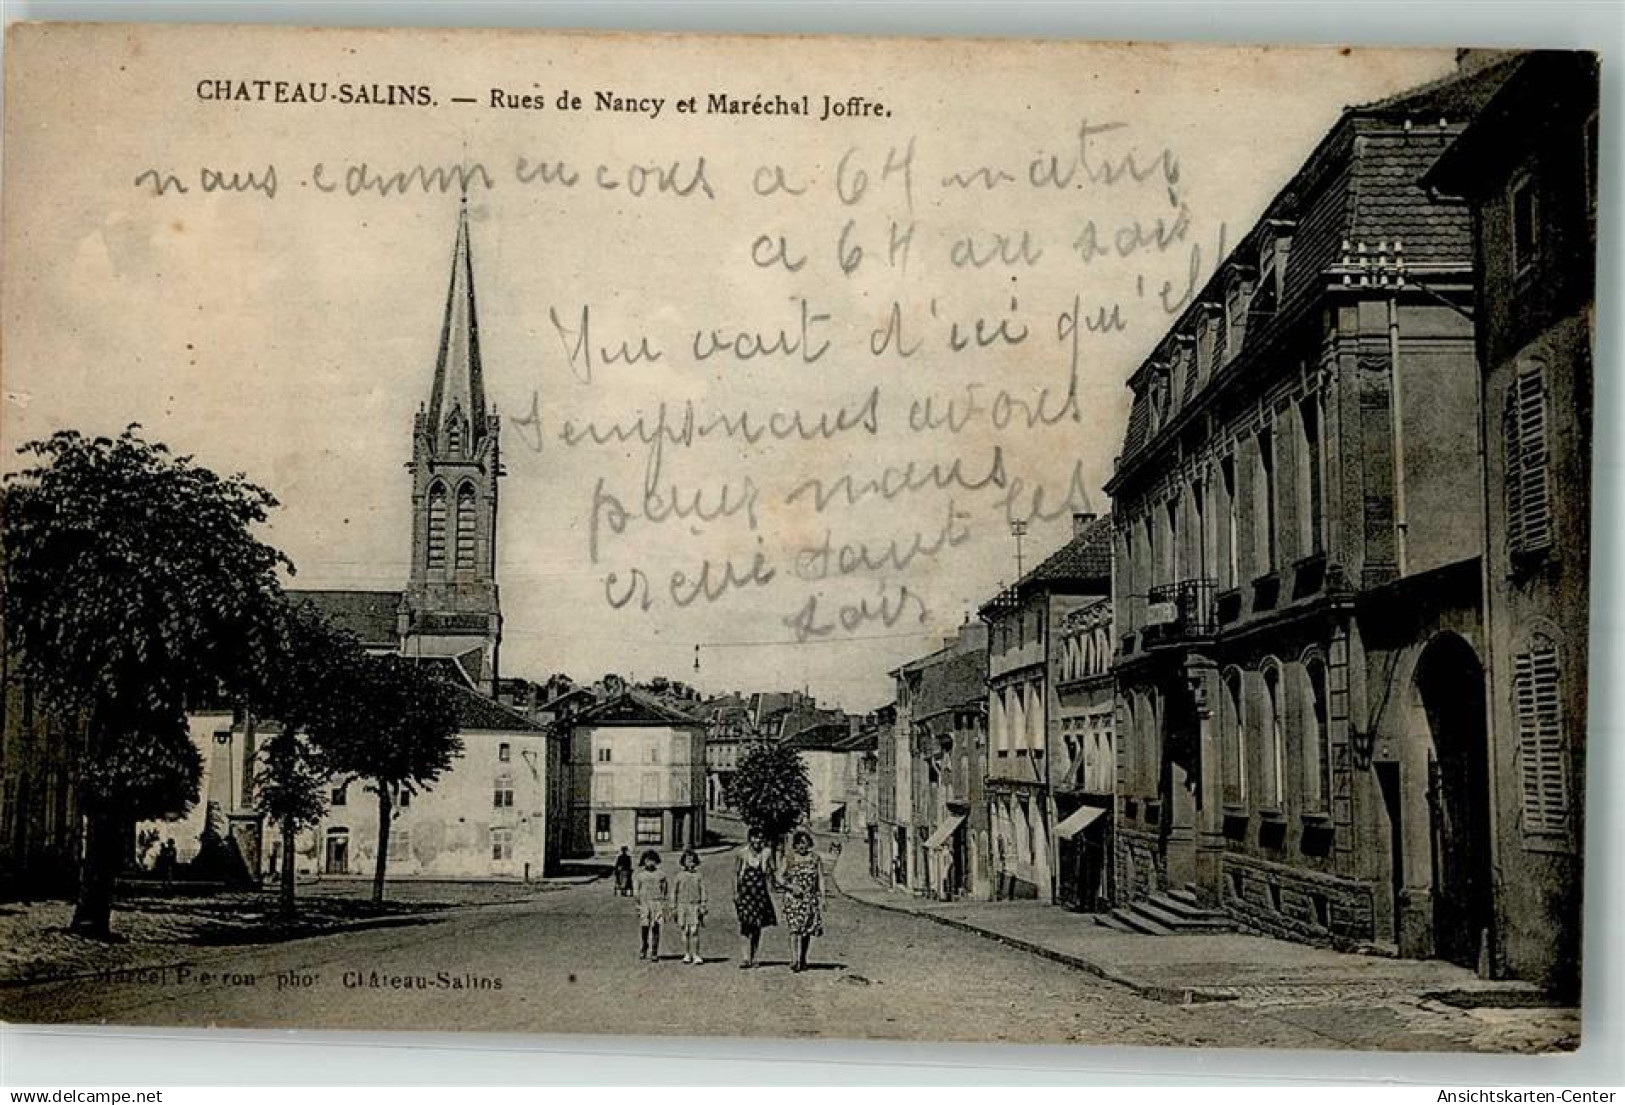 CHATEAU-SALINS. — Rues de Nancy et Maréchal Joffre.
nous commencons a 6H matin
a 6H au soir
vait d'ici qu'el
temps nous avons
pour nous
tout les
soir
Marcel Pierron phot Château-Salins
delcampe.net
Ansichtskarten-Center